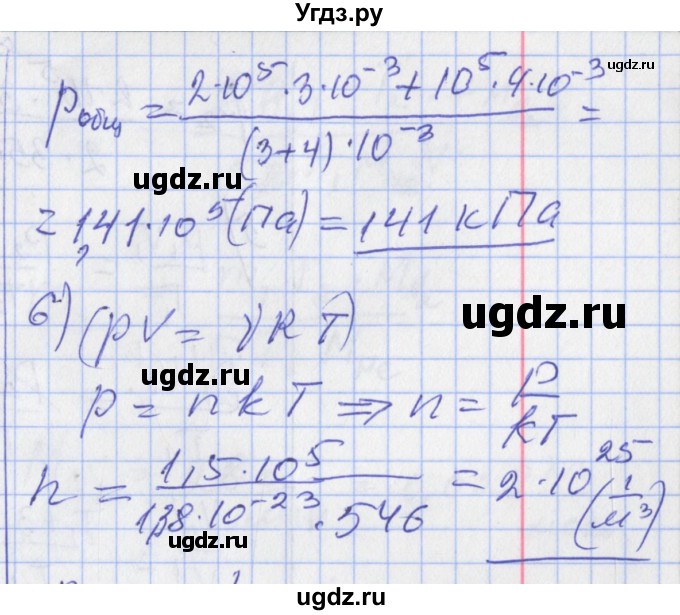 Угдз.ру
P общ = (2·10⁵·3·10⁻³ + 10⁵·4·10⁻³) / ((3+4)·10⁻³) =
ugdz.ru
ugdz.ru
= 1,41·10⁵ (Па) = 141 кПа
ugdz.ru
б) (pV = νRT)
ugdz.ru
p = nkT ⇒ n = P/kT
n = 1,5·10⁵ / (1,38·10⁻²³·546) = 2·10²⁵ (1/м³)
ugdz.ru
ugdz.ru